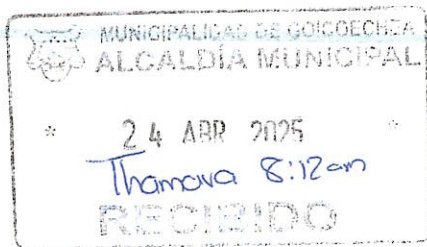 MUNICIPALIDAD DE GOICOECHEA
ALCALDÍA MUNICIPAL
* 24 ABR 2025 *
Thamara 8:12am
RECIBIDO